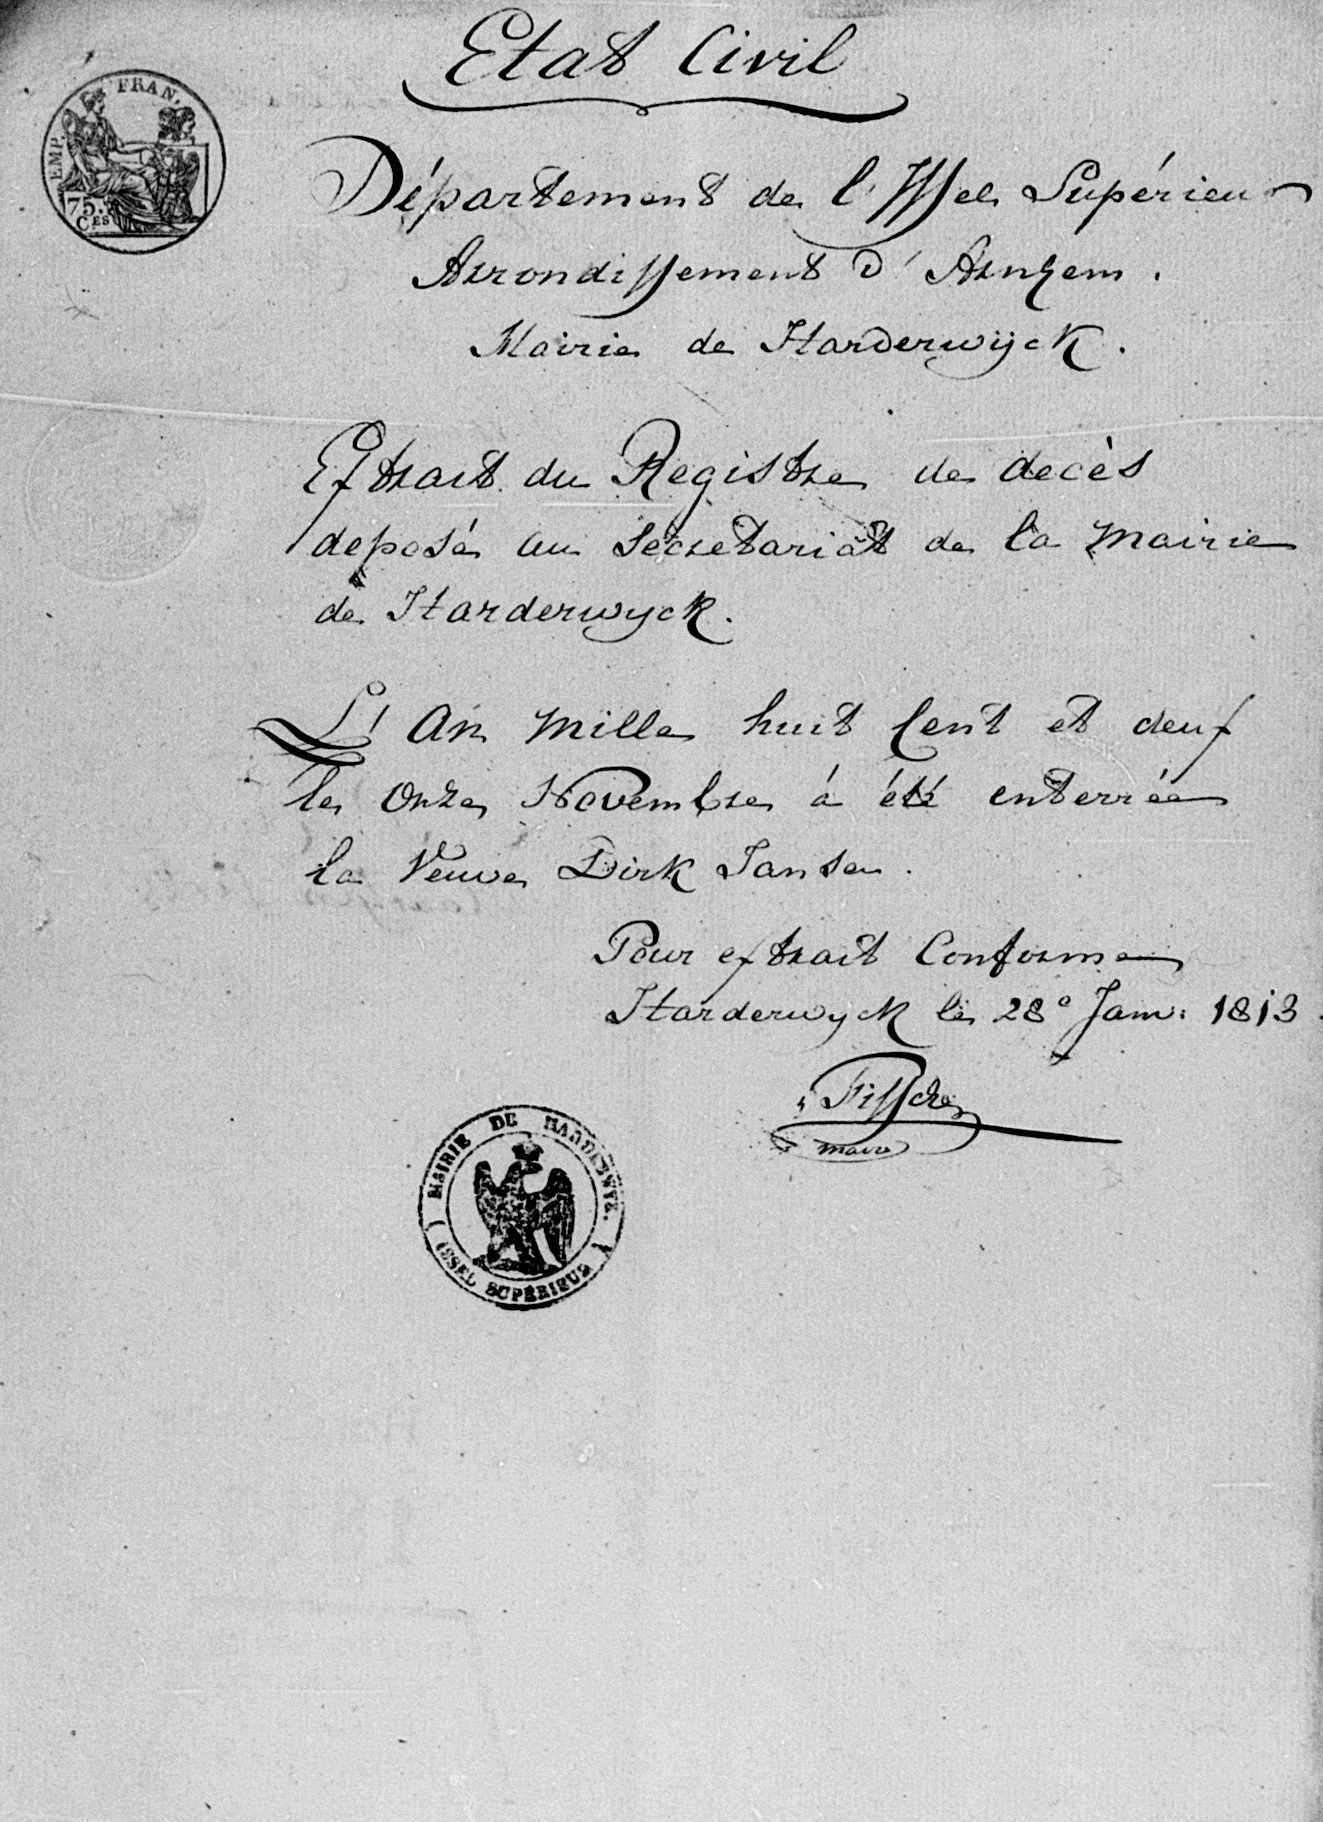 Etat Civil
EMP. FRAN.
75.
CES
Département de l'Yssel Supérieur
Arrondissement d'Arnhem.
Mairie de Harderwijck.
Extrait du Registre de decès
deposé au Secretariat de la Mairie
de Harderwyck.
L'An Mille huit Cent et deux
le Onze Novembre á été enterrée
la Veuve Dirk Jansen.
Pour extrait Conforme
Harderwyck le 28e Janv: 1813.
maire
MAIRIE DE HARDERWYK.
(ISSEL SUPÉRIEUR)